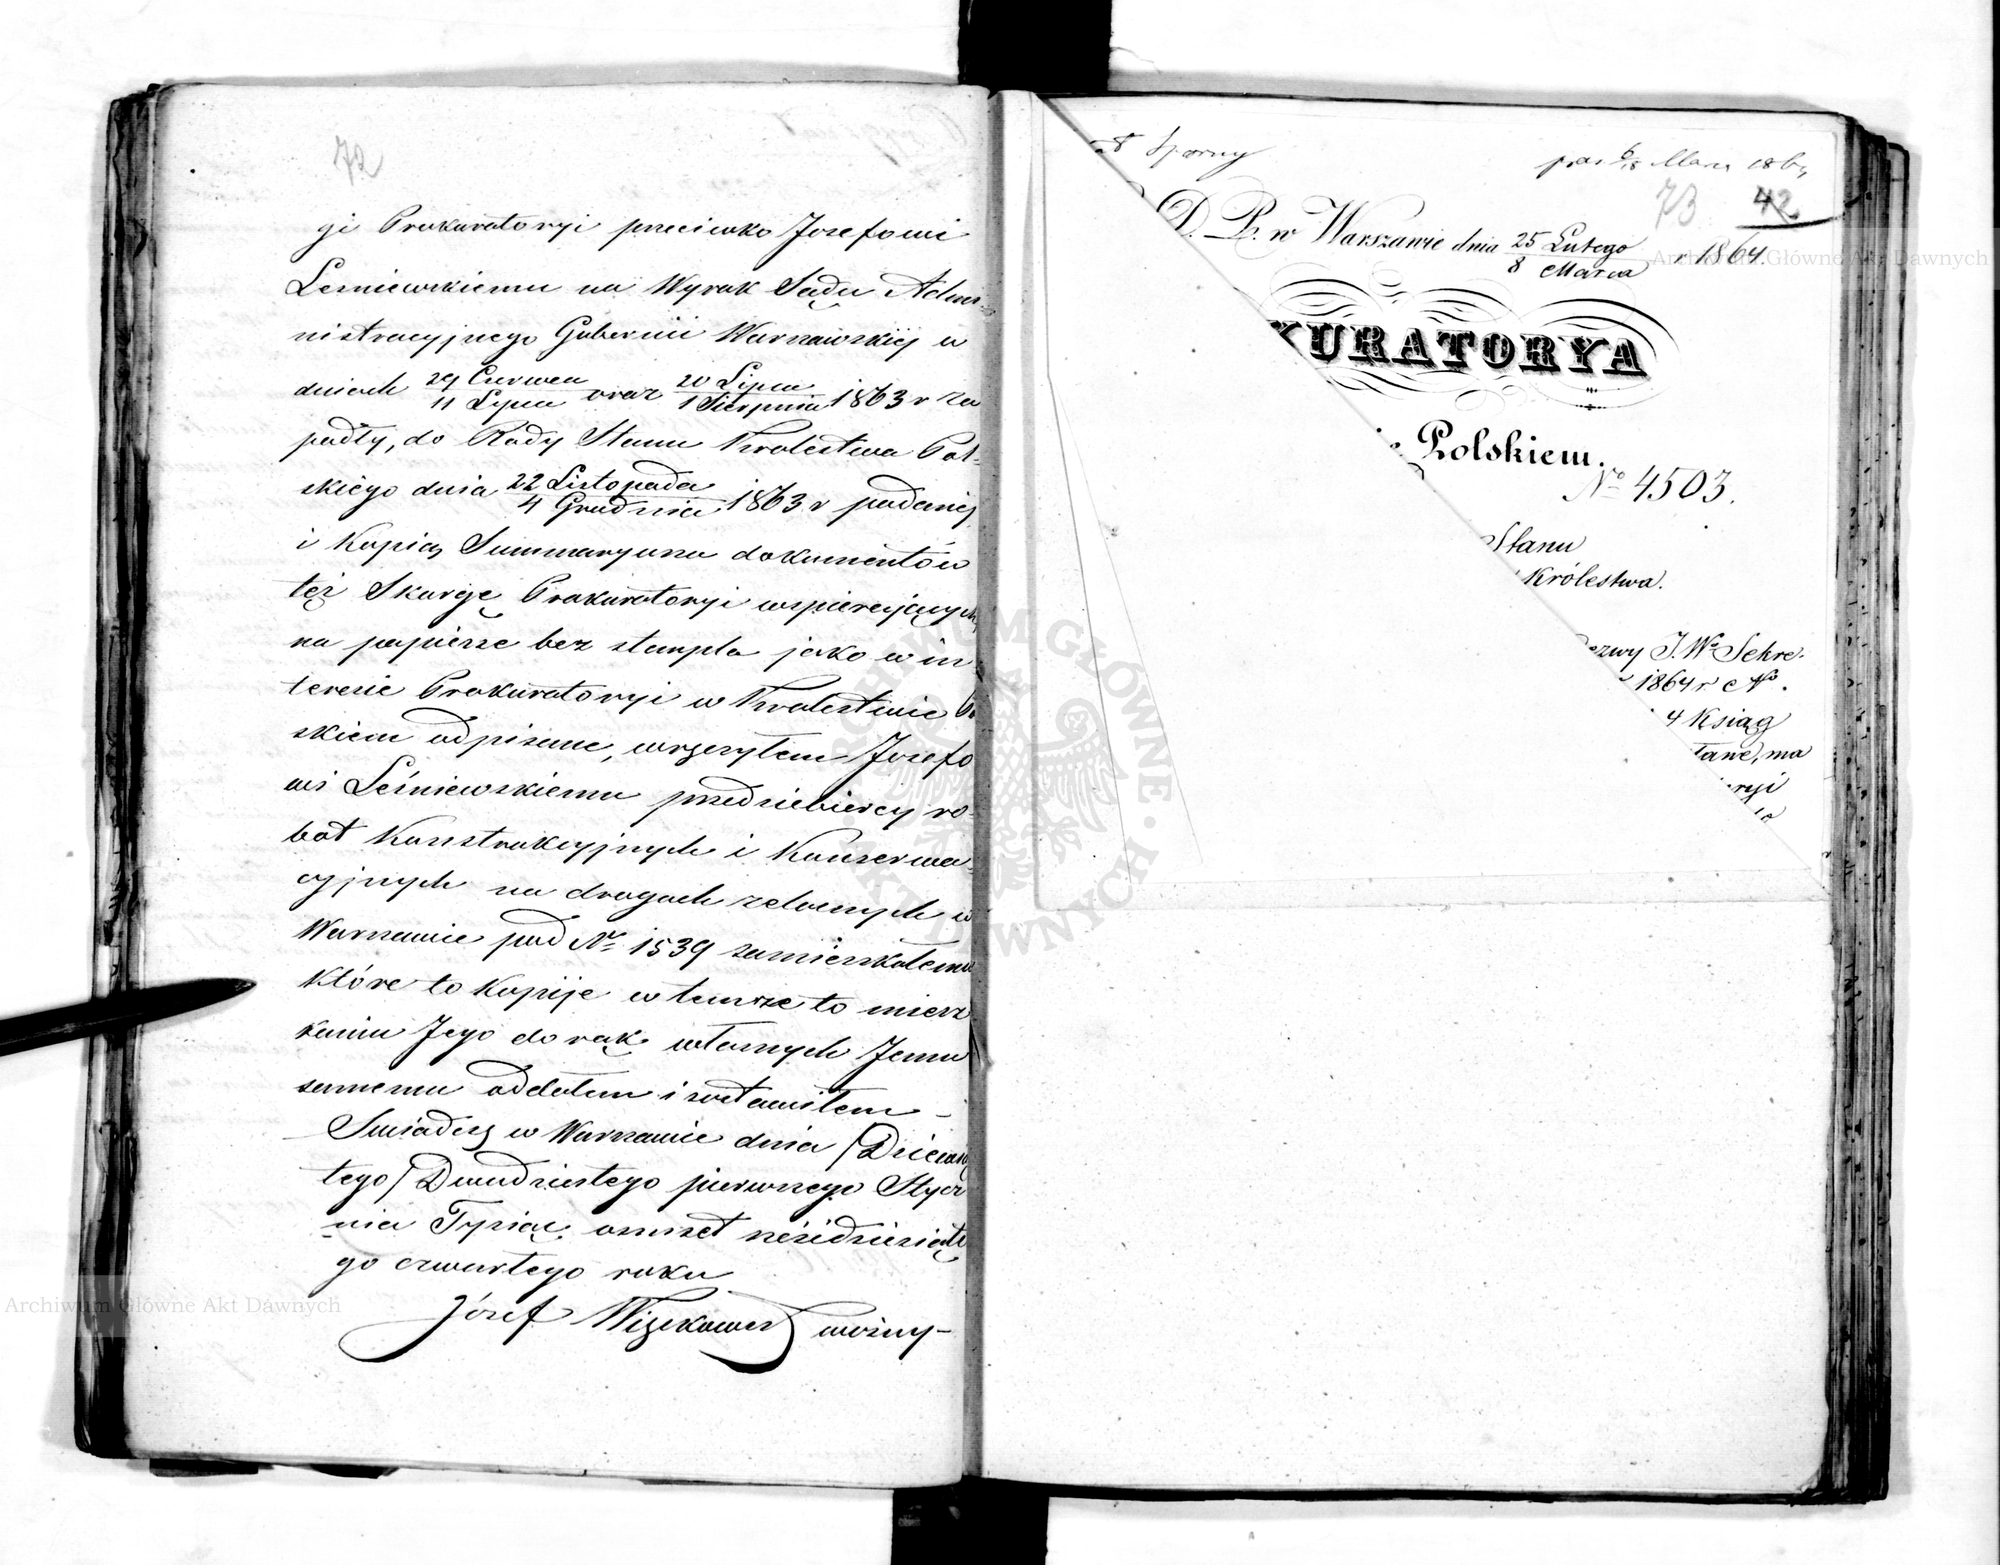 72
gi Prokuratoryi przeciwko Józefowi
Leśniewskiemu na Wyrok Sądu Admi-
nistracyjnego Gubernii Warszawskiej w
dniach 29 Czerwca / 11 Lipca oraz 20 Lipca / 1 Sierpnia 1863 r za
padły, do Rady Stanu Królestwa Pol-
skiego dnia 22 Listopada / 4 Grudnia 1863 r podanej
i Kopią Summaryusza dokumentów
też Skargę Prokuratoryi wspierających,
na papierze bez stempla jako w in-
teresie Prokuratoryi w Królestwie Po
skiem odpisane, wręczyłem Józefo
wi Leśniewskiemu przedsiebiercy ro-
bot Konstrukcyjnych i Konserwa-
cyjnych na drogach żelaznych w
Warszawie pod No 1539 zamieszkałemu
które to Kopije w temże to miesz
kaniu Jego do rąk własnych Jemu
samemu oddałem i zostawiłem –
Świadczę w Warszawie dnia /Dziewią
tego/ Dwudziestego pierwszego Stycz
nia Tysiąc ośmset sześćdziesiąte
go czwartego roku
Józef woźny –
Sporny
18 Marca 1864
73 42
D. P. w Warszawie dnia 25 Lutego / 8 Marca r. 1864
KURATORYA
Polskiem.
No 4503.
Stanu
Królestwa.
ezwy J. Wo Sekre-
1864 r No.
4 Ksiąg
tane, ma
ryi
ARCHIWUM GŁÓWNE AKT DAWNYCH
Archiwum Główne Akt Dawnych
Archiwum Główne Akt Dawnych